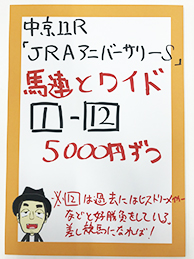 中京11R
「JRAアニバーサリーS」
馬連とワイド
1-12
5000円ずつ
※12は過去にはヒストリーメイカー
などと好勝負をしている。
差し競馬になれば!